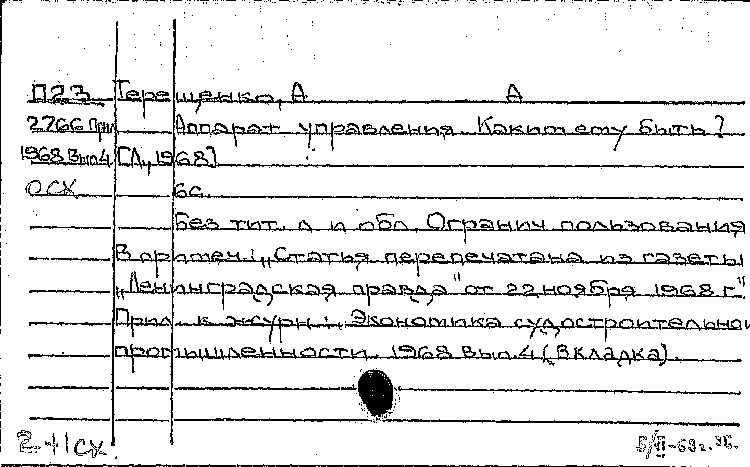 П23 Терещенко, А А
2766 Прил Аппарат управления. Каким ему быть?
1968 Вып.4 [Л., 1968]
ОСХ 6с.
Без тит. л и обл. Огранич пользования
В примеч.: „Статья перепечатана из газеты
„Ленинградская правда" от 22 ноября 1968 г."
Прил. к журн.: Экономика судостроительной
промышленности. 1968 вып. 4 (Вкладка).
2+1сх.